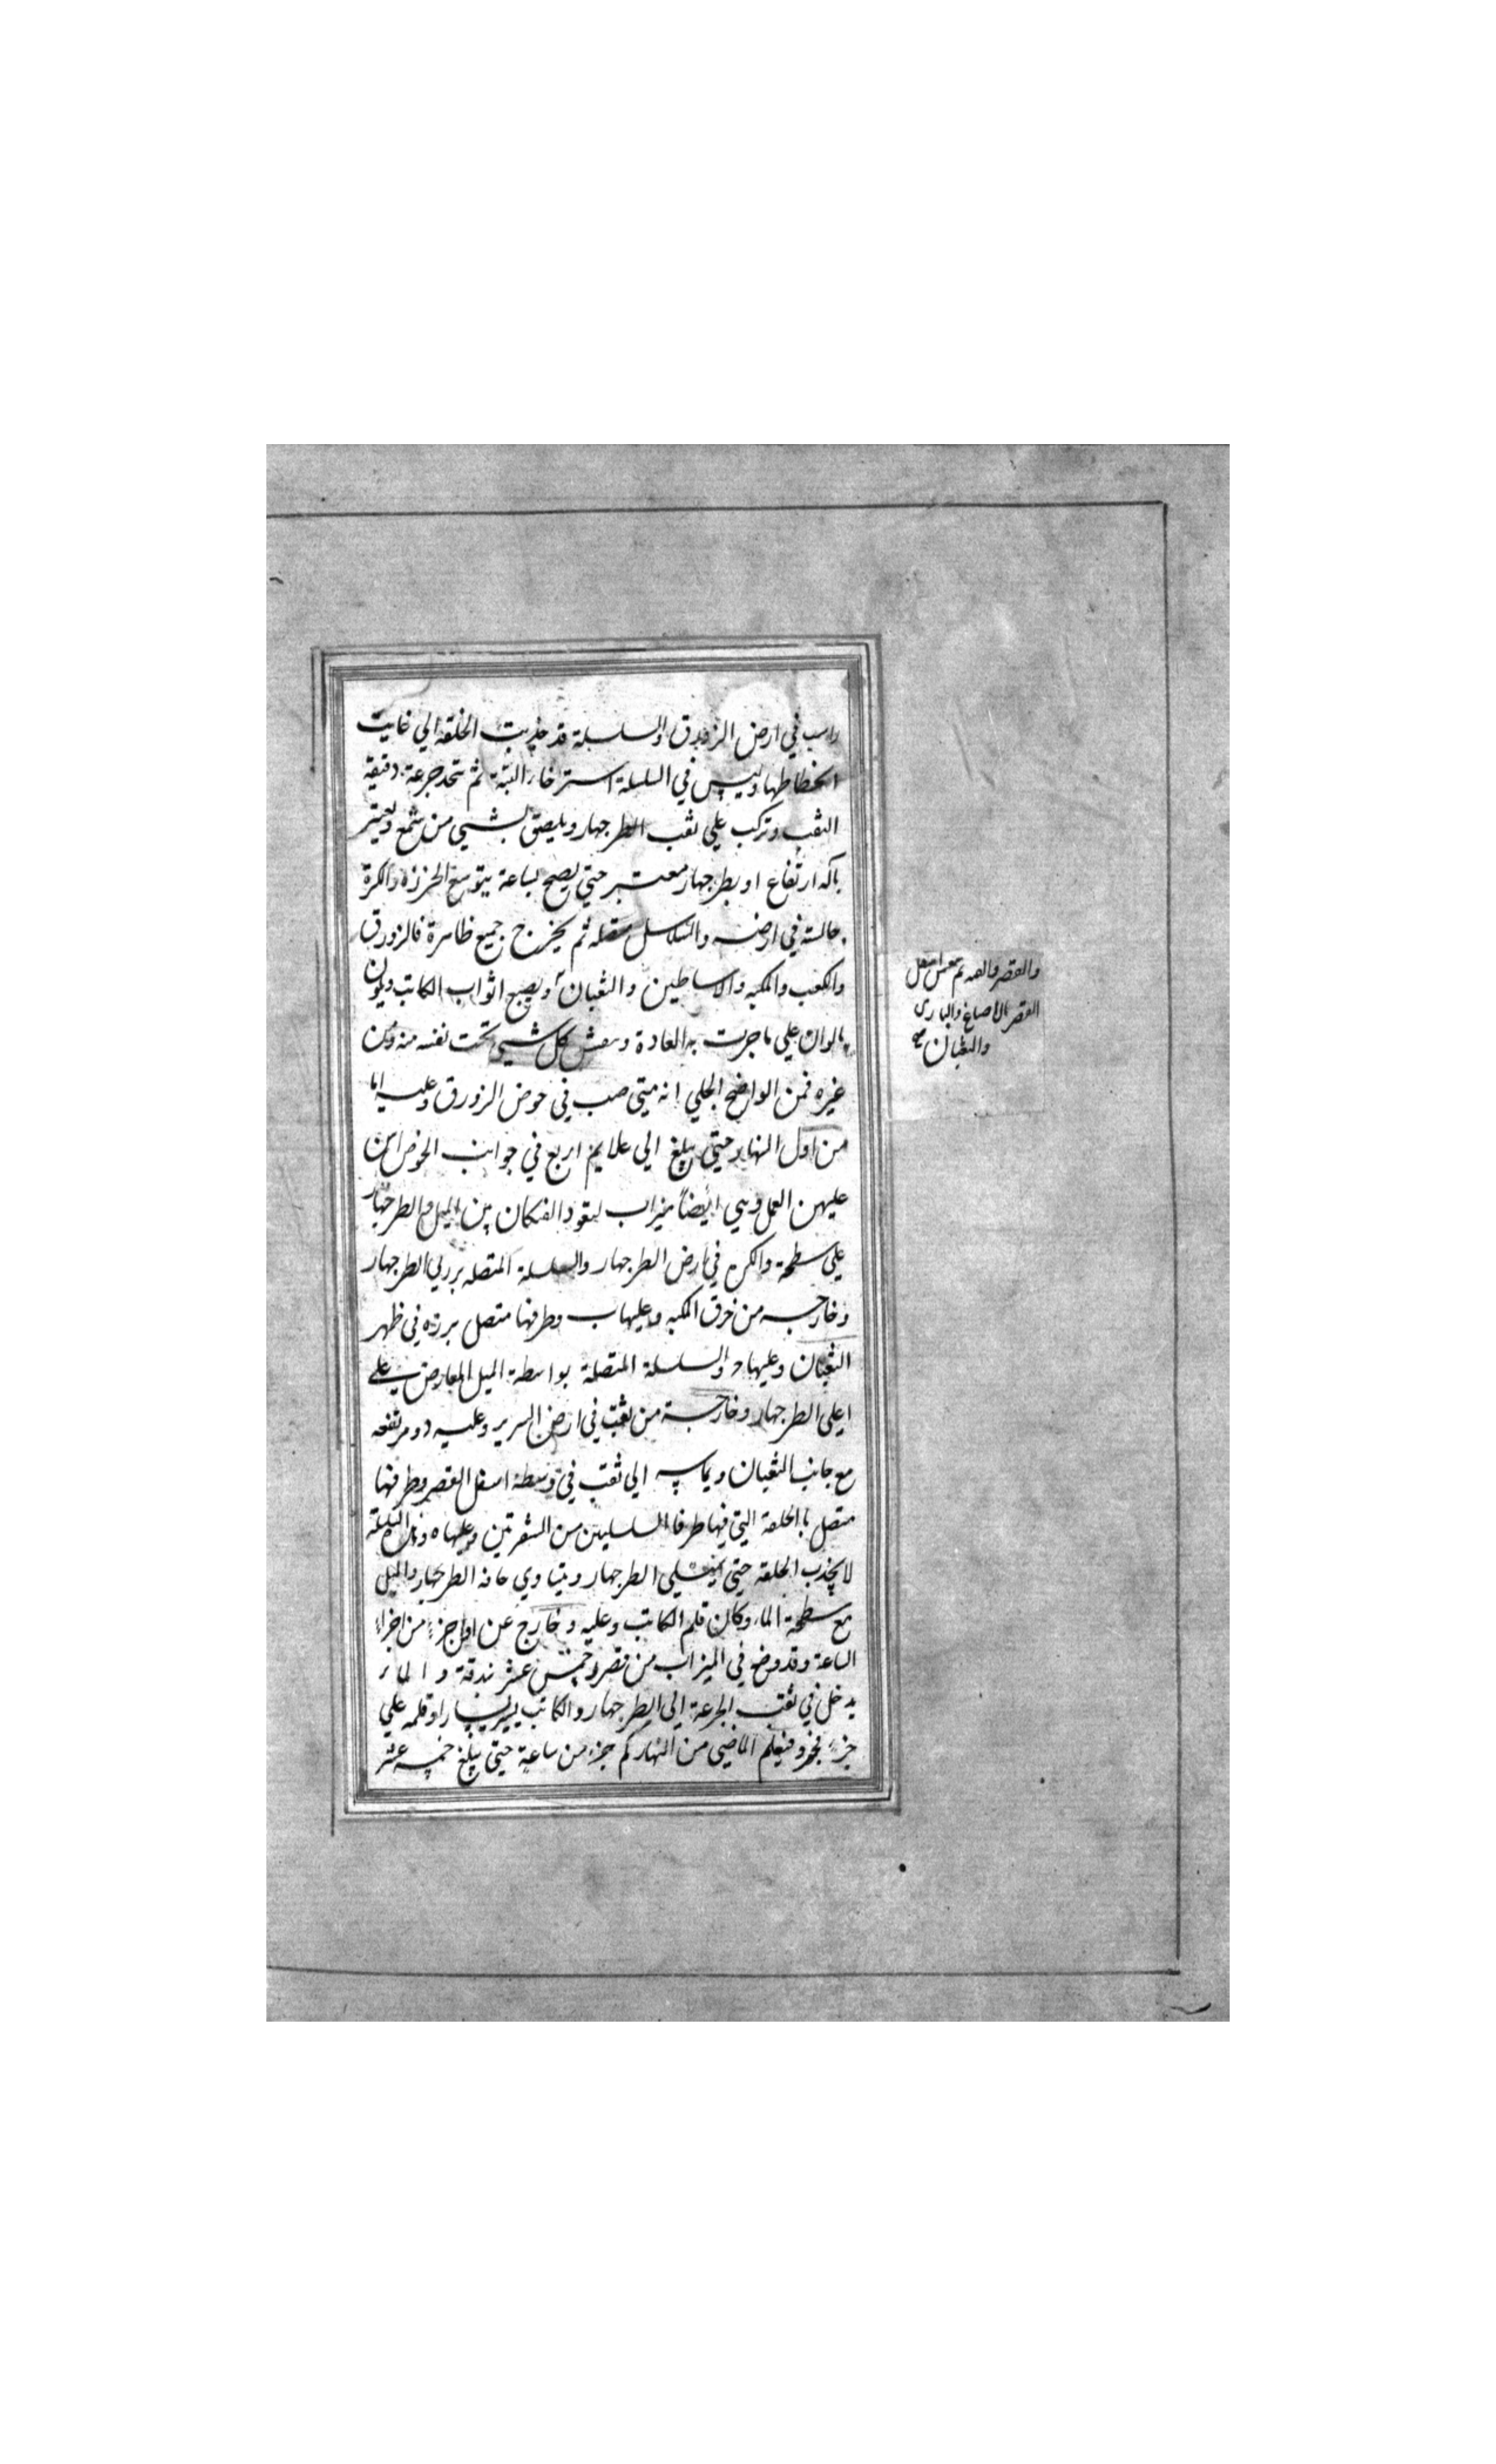 راسب في ارض الزورق والسلسلة قد جذبت الحلقة الي غايت
انحطاطها وليس في السلسلة استرخاء البتة ثم تتخذ جرعة دقيقة
الثقب وتركب علي ثقب الطرجهار ويلصق بشيي من شمع ويعتبر
بالة ارتفاع او بطرجهار معتبر حتي يصح لساعة بتوسع الخرزة والكرة
جالسة في ارضه والسلاسل متصلة ثم يخرج جميع ظاهرة فالزورق
والكعب والمكبه والاساطين والثعبان ويصبغ اثواب الكاتب ويلون
بالوان علي ما جرت به العادة وينقش كل شيي تحت نفسه منه ومن
غيره فمن الواضح الجلي انه متي صب في حوض الزورق وعليه اما
من اول النهار حتي يبلغ الي علايم اربع في جوانب الحوض ان
عليهن العمل وهي ايضا ميزاب ليقود الفكان بين الميل والطرجهار
علي سطحة والكره في ارض الطرجهار والسلسلة المتصله برزلي الطرجهار
وخارجه من خرق المكبه وعليها ب وطرفها متصل برزه في ظهر
الثعبان وعليها ح والسلسلة المتصلة بواسطة الميل المعارض علي
اعلي الطرجهار وخارجة من ثقب في ارض السرير وعليه د ومرتفعه
مع جانب الثعبان ويماسه الي ثقب في وسطة اسفل القصر وطرفها
متصل بالحلقة التي فيها طرفا السلسلتين من السفرتين وعليها ه وهذه السلسلة
لا تجذب الحلقة حتي يمتلي الطرجهار ويتساوي حافة الطرجهار والميل
مع سطحة الماء وكان قلم الكاتب وعليه و خارج عن اول جزء من اجزاء
الساعة وقد وضع في الميزاب من قصر خمس عشر بندقة والماء
يدخل في ثقب الجرعة الي الطرجهار والكاتب يسير يسارا وقلمه علي
جزء فجزو فيعلم الماضي من النهار كم جزء من ساعة حتي يبلغ خمسه عشر
والقصر اسفل
القصر بالاصباغ والبازي
والثعبان صح